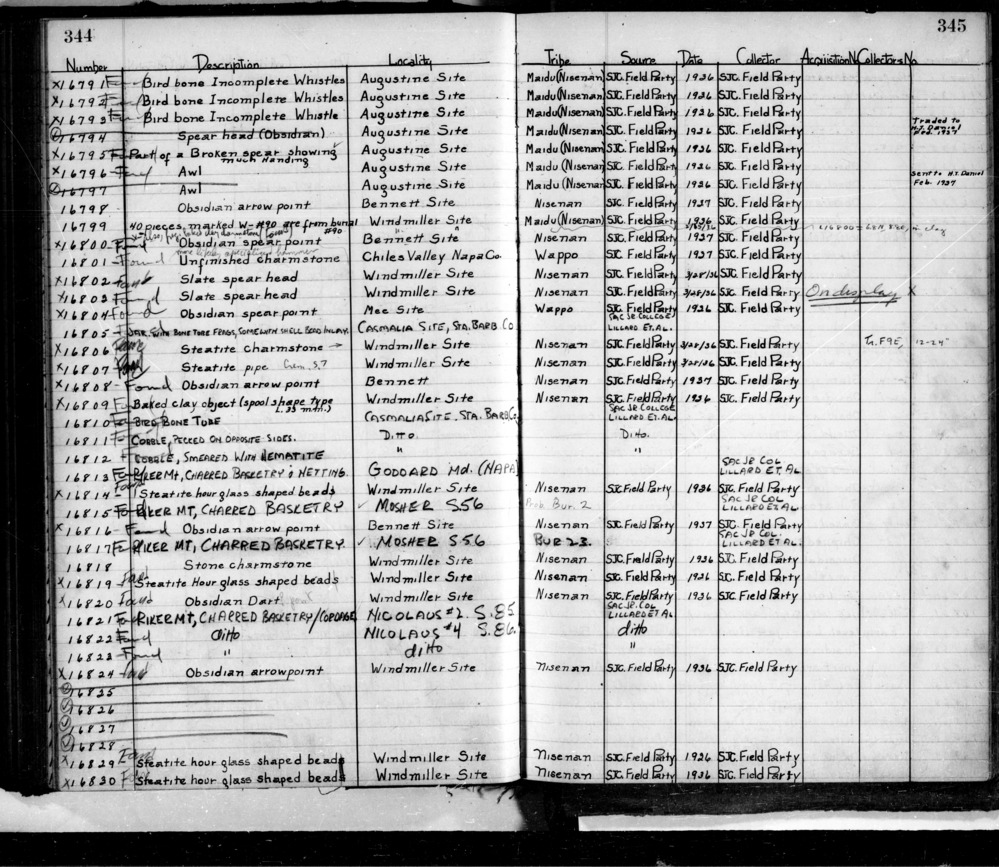 344
345
Number Description Locality Tribe Source Date Collector Acquisition No Collectors No.
X16791 Bird bone Incomplete Whistles Augustine Site Maidu (Nisenan) SJC. Field Party 1936 SJC. Field Party
X16792 Bird bone Incomplete Whistles Augustine Site Maidu (Nisenan) SJC. Field Party 1936 SJC. Field Party
X16793 Bird bone Incomplete Whistle Augustine Site Maidu (Nisenan) SJC. Field Party 1936 SJC. Field Party
16794 Spear head (Obsidian) Augustine Site Maidu (Nisenan) SJC. Field Party 1936 SJC. Field Party Traded to
X16795 Part of a Broken spear showing much Handing Augustine Site Maidu (Nisenan) SJC. Field Party 1936 SJC. Field Party
X16796 Found Awl Augustine Site Maidu (Nisenan) SJC. Field Party 1936 SJC. Field Party
16797 Awl Augustine Site Maidu (Nisenan) SJC. Field Party 1936 SJC. Field Party sent to H.T. Daniel Feb. 1937
16798 Obsidian arrow point Bennett Site Nisenan SJC. Field Party 1937 SJC. Field Party
16799 40 pieces, marked W-#90 are from burial #90 Windmiller Site Maidu (Nisenan) SJC. Field Party 1936 SJC. Field Party
X16800 Found Obsidian spear point Bennett Site Nisenan SJC. Field Party 1937 SJC. Field Party
16801 - Found Unfinished charmstone Chiles Valley Napa Co. Wappo SJC. Field Party 1937 SJC. Field Party
X16802 - Found Slate spear head Windmiller Site Nisenan SJC. Field Party 3/28/36 SJC. Field Party
X16803 Found Slate spear head Windmiller Site Nisenan SJC. Field Party 3/28/36 SJC. Field Party On display X
X16804 Found Obsidian spear point Mee Site Wappo SJC. Field Party 1936 SJC. Field Party
16805 - JAR WITH BONE TUBE FRAGS, SOME WITH SHELL BEAD INLAY. CASMALIA SITE, STA. BARB. CO. SAC JR COLLEGE LILLARD ET. AL.
X16806 Steatite charmstone → Windmiller Site Nisenan SJC. Field Party 3/28/36 SJC. Field Party Tr. F9E, 12-24"
X16807 Steatite pipe Windmiller Site Nisenan SJC. Field Party 3/28/36 SJC. Field Party
X16808 - Found Obsidian arrow point Bennett Nisenan SJC. Field Party 1937 SJC. Field Party
X16809 Baked clay object (spool shape type L. 35 m.m.) Windmiller Site Nisenan SJC. Field Party 1936 SJC. Field Party
16810 BIRD BONE TUBE CASMALIA SITE. STA. BARB Co. SAC JR COLLEGE LILLARD ET. AL.
16811 COBBLE, PECKED ON OPPOSITE SIDES. DITTO. DITTO.
16812 COBBLE, SMEARED WITH HEMATITE " "
16813 RIKER MT, CHARRED BASKETRY & NETTING. GODDARD Md. (NAPA) SAC JR COL LILLARD ET. AL.
X16814 - Steatite hour glass shaped beads Windmiller Site Nisenan SJC Field Party 1936 SJC. Field Party
16815 RIKER MT, CHARRED BASKETRY ✓ MOSHER S56 Prob. Bur. 2 SAC JR COL LILLARD ET AL
X16816 - Found Obsidian arrow point Bennett Site Nisenan SJC. Field Party 1937 SJC. Field Party
16817 RIKER MT, CHARRED BASKETRY. ✓ MOSHER S56 BUR 23. SAC JR COL. LILLARD ET AL.
16818 Stone charmstone Windmiller Site Nisenan SJC. Field Party 1936 SJC. Field Party
X16819 - Steatite Hour glass shaped beads Windmiller Site Nisenan SJC. Field Party 1936 SJC. Field Party
X16820 Found Obsidian Dart point Windmiller Site Nisenan SJC. Field Party 1936 SJC. Field Party
16821 RIKER MT, CHARRED BASKETRY/CORDAGE NICOLAUS #2 S.85 SAC. JR. COL LILLARD ET AL
16822 Found ditto NICOLAUS #4 S.86. ditto
16823 - Found " ditto "
X16824 Obsidian arrowpoint Windmiller Site Nisenan SJC. Field Party 1936 SJC. Field Party
16825
16826
16827
16828
X16829 Steatite hour glass shaped beads Windmiller Site Nisenan SJC. Field Party 1936 SJC. Field Party
X16830 Steatite hour glass shaped beads Windmiller Site Nisenan SJC. Field Party 1936 SJC. Field Party